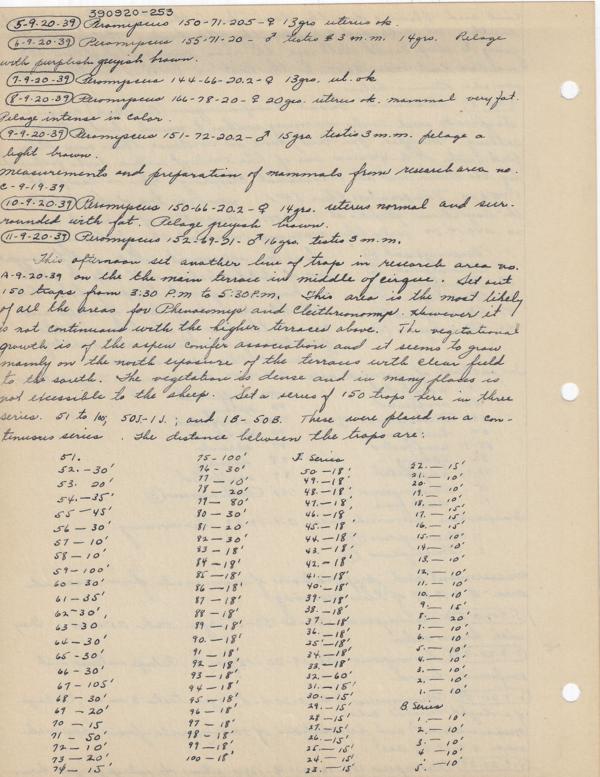 390920-253
5-9-20-39 Peromyscus 150-71-20.5-♀ 13grs uterus ok.
6-9-20-39 Peromyscus 155-71-20-♂ testis 3 m.m. 14grs. Pelage
with purplish greyish brown.
7-9-20-39 Peromyscus 144-66-20.2-♀ 13grs. ut. ok
8-9-20-39 Peromyscus 166-78-20-♀ 20grs. uterus ok. mammal very fat.
Pelage intense in color.
9-9-20-39 Peromyscus 151-72-20.2-♂ 15grs testis 3 m.m. pelage a
light brown.
Measurements and preparation of mammals from research area no.
C-9-19-39
10-9-20-39 Peromyscus 150-66-20.2-♀ 14grs. uterus normal and sur-
rounded with fat. Pelage greyish brown.
11-9-20-39 Peromyscus 152-69-21-♂ 16grs. testis 3 m.m.
This afternoon set another line of traps in research area no.
A-9-20-39 on the the main terrace in middle of cirque. Set out
150 traps from 3:30 P.M to 5:30P.M. This area is the most likely
of all the areas for Phenacomys and Cleithronomys. However it
is not continuous with the higher terraces above. The vegetational
growth is of the aspen conifer association and it seems to grow
mainly on the north exposure of the terraces with clear field
to the south. The vegetation is dense and in many places is
not excessible to the sheep. Set a series of 150 traps here in three
series. 51 to 100; 50J-1J.; and 1B-50B. These were placed in a con-
tinuous series. The distance between the traps are:
51.
52.-30'
53. 20'
54.-35'
55-45'
56-30'
57-10'
58-10'
59-100'
60-30'
61-35'
62-30'
63-30
64-30'
65-30'
66-30'
67-105'
68-30'
69-20'
70-15
71-50'
72-10'
73-20'
74-15'
75-100'
76-30'
77-10'
78-20'
79-80'
80-30'
81-20'
82-30'
83-18'
84-18'
85-18'
86-18'
87-18'
88-18'
89-18'
90.-18'
91-18'
92-18'
93-18'
94-18'
95-18'
96-18'
97-18'
98-18'
99-18'
100-18'
J. Series
50-18'
49.-18'
48.-18'
47.-18'
46.-18'
45.-18'
44.-18'
43.-18'
42.-18'
41.-18'
40.-18'
39.-18'
38.-18'
37.-18'
36.-18'
35-18'
34.-18'
33.-18'
32.-60'
31.-15'
30.-15'
29.-15'
28-15'
27.-15'
26.-15'
25-15'
24.-15'
23.-15'
22.-15'
21.-10'
20-10'
19.-10'
18.-15'
17.-15'
16.-15'
15.-10'
14-10'
13.-10'
12.-10'
11.-10'
10.-10'
9.-15'
8.-20'
7.-10'
6.-10'
5.-10'
4.-10'
3.-10'
2.-10'
1.-10'
B Series
1.-10'
2.-10'
3.-10'
4-10'
5.-10'